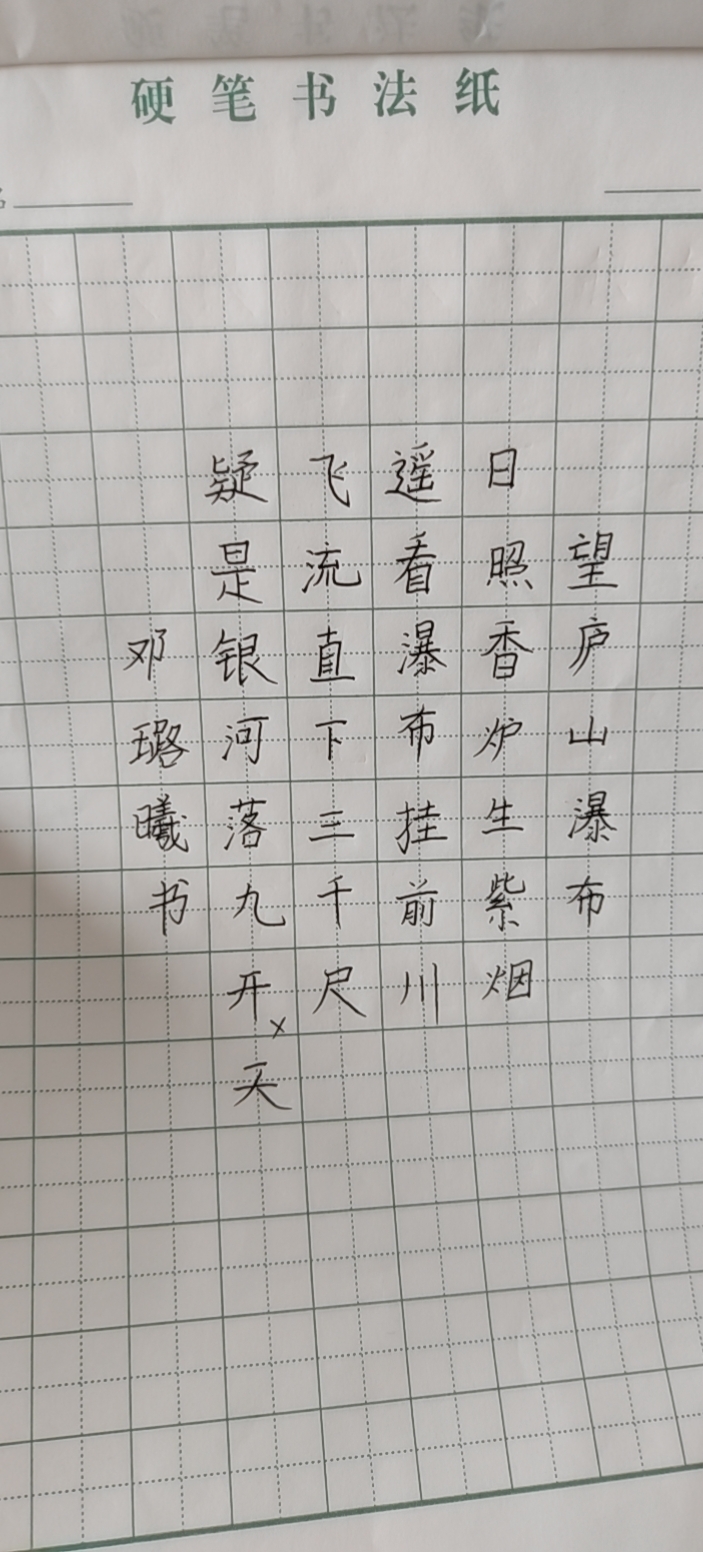 硬笔书法纸
望庐山瀑布
日照香炉生紫烟
遥看瀑布挂前川
飞流直下三千尺
疑是银河落九开x天
邓璐曦书